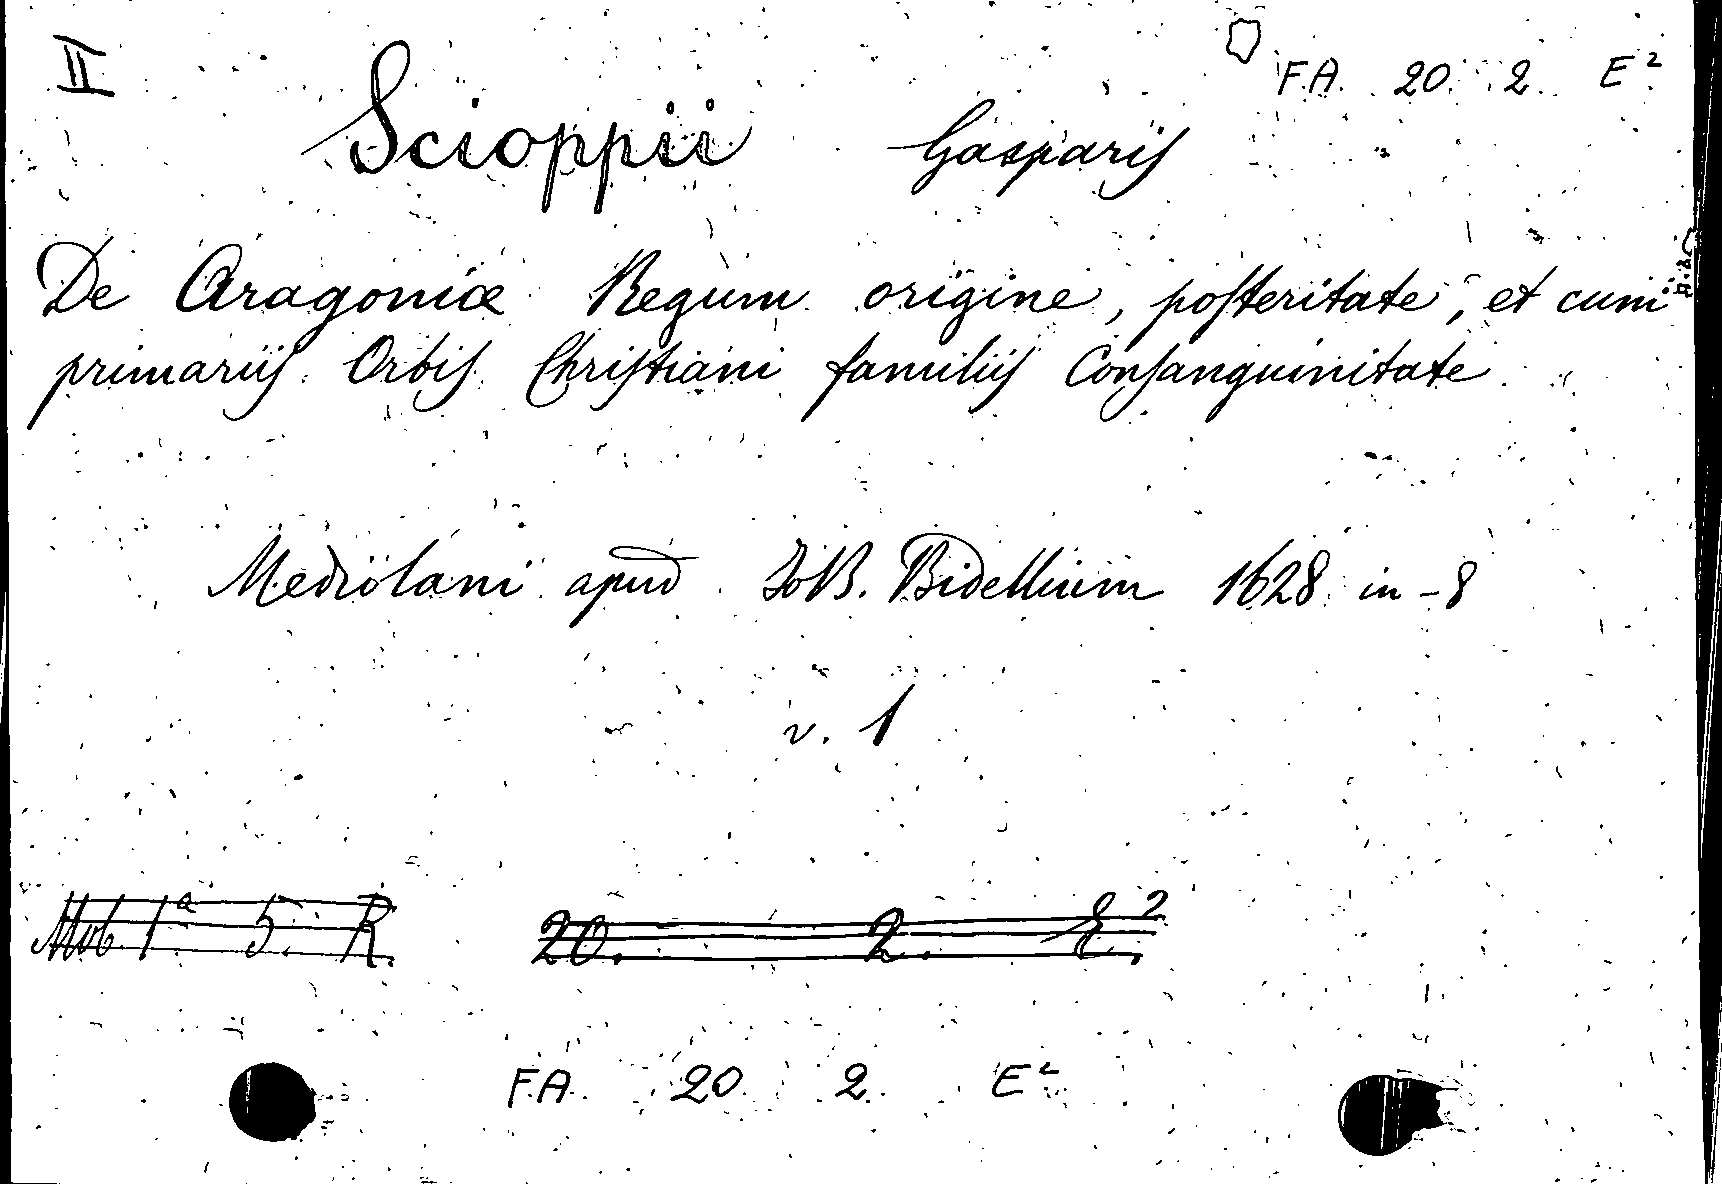 II
FA 20 2 E²
Scioppii Gasparis
De Aragoniæ Regum origine, posteritate, et cum
primariis Orbis Christiani familiis Consanguinitate
Mediolani apud Io B. Bidellium 1628 in-8
v. 1
Mob 1ª 5. R. 20. 2. E.²
FA 20 2 E²